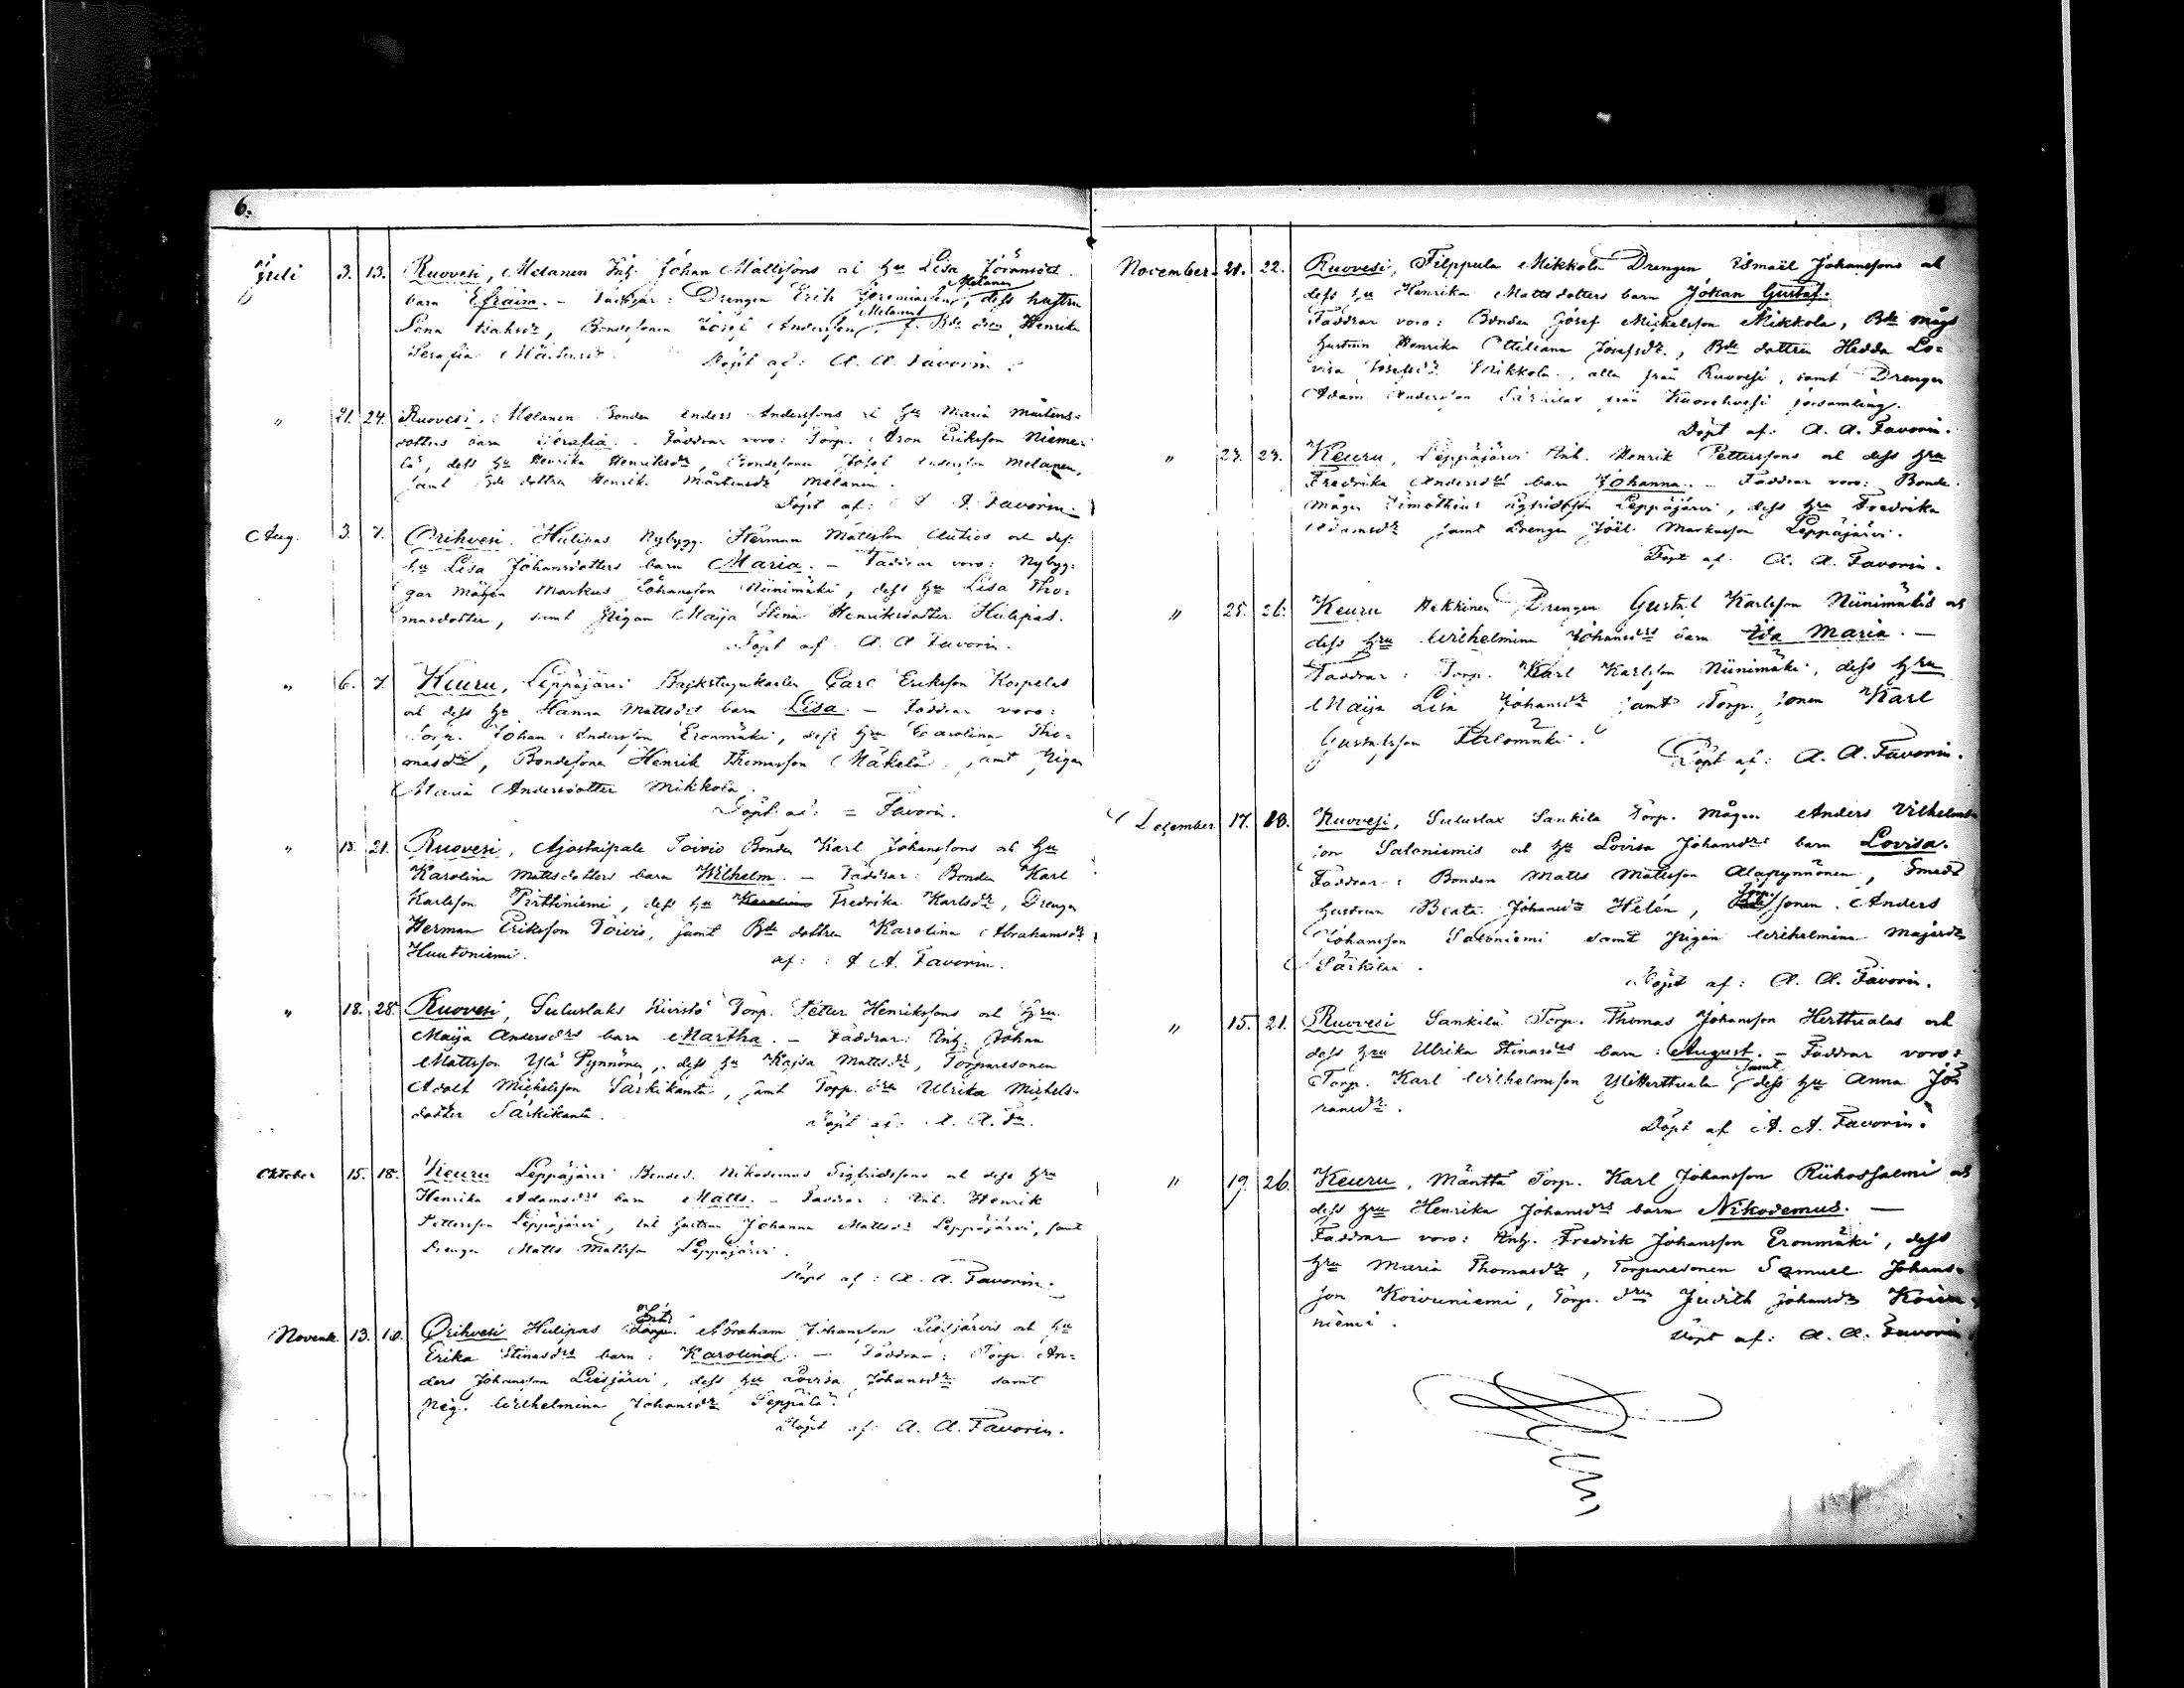 6.
Juli 3. 13. Ruovesi, Melanen Inh. Johan Mattssons och hu Lisa Jöransdott
barn Efraim. – Faddrar: Drengen Erik Jeremiasson Melanen, dess hustru
Lena, Bondesonen Josef Andersson Melanen, f. Bde dren Henrika
Serafia Mårtensdr. Döpt af: A. A. Favorin.
" 21. 24. Ruovesi, Melanen Bonden Anders Anderssons och hu Maria Mårtens-
dotters barn Serafia. – Faddrar voro: Torp. Aron Eriksson Nieme-
lä, dess hu Henrika Henriksdr, Bondesonen Josef Andersson Melanen,
samt Bde dottren Henrika Mårtensdr Melanen.
Döpt af: A. A. Favorin.
Aug. 3. 7. Orihvesi. Hulipas Nybygg. Herman Mattsson Autios och dess
hu Lisa Johansdotters barn Maria. – Faddrar voro: Nybyg-
gar mågen Markus Johansson Niinimäki, dess hu Lisa Tho-
masdotter, samt Pigan Maija Stina Henriksdotter Hulipas.
Döpt af A. A. Favorin.
" 6. 7. Keuru, Leppäjärvi Backstugukarlen Carl Eriksson Korpelas
och dess hu Hanna Mattsdrs barn Lisa. – Faddrar voro:
Torp. Johan Andersson Eronmäki, dess hu Carolina Tho-
masdr, Bondesonen Henrik Thomasson Mäkelä, samt Pigan
Maria Andersdotter Mikkola.
Döpt af: = Favorin.
" 18. 21. Ruovesi, Ajostaipale Toivio Bonden Karl Johanssons och hu
Karolina Mattsdotters barn Wilhelm. – Faddrar: Bonden Karl
Karlsson Pirttiniemi, dess hu Karolina Fredrika Karlsdr, Drengen
Herman Eriksson Toivio, samt Bde dottren Karolina Abrahamsdr
Huutoniemi. af: A. A. Favorin.
" 18. 28. Ruovesi, Suluslaks Kivistö Torp. Petter Henrikssons och hru
Maija Andersdrs barn Martha. – Faddrar: Inh. Johan
Mattsson Ylä Pynnönen, dess hu Kajsa Mattsdr, Torparesonen
Adolf Michelsson Särkikanta, samt Torp. dren Ulrika Michels-
dotter Särkikanta. Döpt af: A. A. Fn.
Oktober 15. 18. Keuru Leppäjärvi Bondes. Nikodemus Sigfridssons och dess hru
Henrika Adamsdrs barn Matts. – Faddrar: Inh. Henrik
Pettersson Leppäjärvi, Inh hustrun Johanna Mattsdr Leppäjärvi, samt
Drengen Matts Mattsson Leppäjärvi.
Döpt af: A. A. Favorin.
Novemb. 13. 16. Orihvesi Hulipas Torp. Inh. Abraham Johansson Liesjärvis och hu
Erika Stinasdrs barn: Karolina. – Faddrar: Torp. An-
ders Johansson Liesjärvi, dess hu Lovisa Johansdr samt
Pig. Wilhelmina Johansdr Seppälä.
Döpt af: A. A. Favorin.
November 20. 22. Ruovesi, Filppula Mikkola Drengen Ismaël Johanssons och
dess hu Henrika Mattsdotters barn Johan Gustaf.
Faddrar voro: Bonden Josef Michelsson Mikkola, Bde mågs
hustrun Henrika Ottiliana Josefsdr., Bde dottren Hedda Lo-
visa Josefsdr Mikkola, alla från Ruovesi, samt Drengen
Adam Andersson Särkilax från Kuorehvesi församling.
Döpt af: A. A. Favorin.
" 23. 23. Keuru, Leppäjärvi Inh. Henrik Petterssons och dess hru
Fredrika Andersdrs barn Johanna. – Faddrar voro: Bonde-
mågen Timotheus Sigfridsson Leppäjärvi, dess hu Fredrika
Adamsdr samt Drengen Joël Markusson Leppäjärvi.
Döpt af A. A. Favorin.
" 25. 26. Keuru Hekkinen Drengen Gustaf Karlsson Niinimäkis och
dess hru Wilhelmina Johansdrs barn Ida Maria. –
Faddrar: Torp. Karl Karlsson Niinimäki, dess hru
Maija Lisa Johansdr samt Torp. sonen Karl
Gustafsson.
Döpt af: A. A. Favorin.
December 17. 18. Ruovesi, Suluslax Sankila Torp. Mågen Anders Vilhelms-
son Saloniemis och hu Lovisa Johansdrs barn Lovisa.
Faddrar: Bonden Matts Mattsson Alapynnönen, Smeds
hustrun Beata Johansdr Helén, Torp. sonen Anders
Johansson Saloniemi samt Pigan Wilhelmina Majasdr
Särkilax. Döpt af: A. A. Favorin.
" 15. 21. Ruovesi Sankila Torp. Thomas Johansson Herttualas och
dess hru Ulrika Stinasdrs barn: August. – Faddrar voro:
Torp. Karl Wilhelmsson Yliherttuala samt dess hu Anna Jö-
ransdr.
Döpt af A. A. Favorin.
" 19. 26. Keuru, Mänttä Torp. Karl Johansson Riihossalmi och
dess hru Henrika Johansdrs barn Nikodemus. –
Faddrar voro: Inh. Fredrik Johansson Eronmäki, dess
hru Maria Thomasdr, Torparesonen Samuel Johans-
son Koivuniemi, Torp. dren Judith Johansdr Koivu-
niemi.
Döpt af: A. A. Favorin